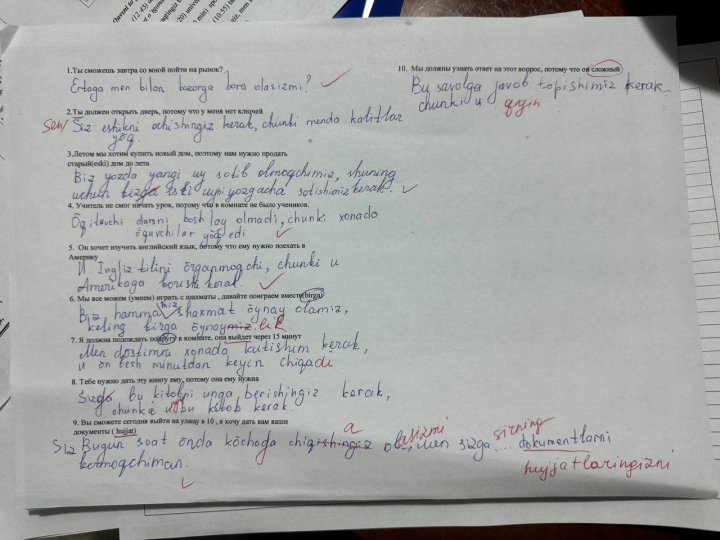 1.Ты сможешь завтра со мной пойти на рынок?
Ertaga men bilan bozorga bora olasizmi?
2.Ты должен открыть дверь, потому что у меня нет ключей
Sen/ Siz eshikni ochishingiz kerak, chunki menda kalitlar
yõq.
3.Летом мы хотим купить новый дом, поэтому нам нужно продать
старый(eski) дом до лета
Biz yozda yangi uy sotib olmoqchimiz, shuning
uchun bizga eski uyni yozgacha sotishimiz kerak.
4. Учитель не смог начать урок, потому что в комнате не было учеников.
Õqituvchi darsni bosh lay olmadi, chunki xonada
õquvchilar yõq edi
5. Он хочет изучить английский язык, потому что ему нужно поехать в
Америку
U Ingliz tilini õrganmoqchi, chunki u
Amerikaga borishi kerak.
6. Мы все можем (умеем) играть с шахматы , давайте поиграем вместе(birga)
Biz hamma miz shaxmat õynay olamiz,
keling birga õynaymiz. lik
7. Я должна подождать подругу в комнате, она выйдет через 15 минут
Men dõstimni xonada kutishim kerak,
u on besh minutdan keyin chiqadi
8. Тебе нужно дать эту книгу ему, потому она ему нужна
Sizga bu kitobni unga berishingiz kerak,
chunki unga bu kitob kerak.
9. Вы сможете сегодня выйти на улицу в 10 , я хочу дать вам ваши
документы ( hujjat)
Siz Bugun soat õnda kõchaga chiqishingiz a olasizmi, Men sizga sizning dokumentlarni
bermoqchiman. hujjatlaringizni
10. Мы должны узнать ответ на этот вопрос, потому что он сложный
Bu savolga javob topishimiz kerak,
chunki u qiyin